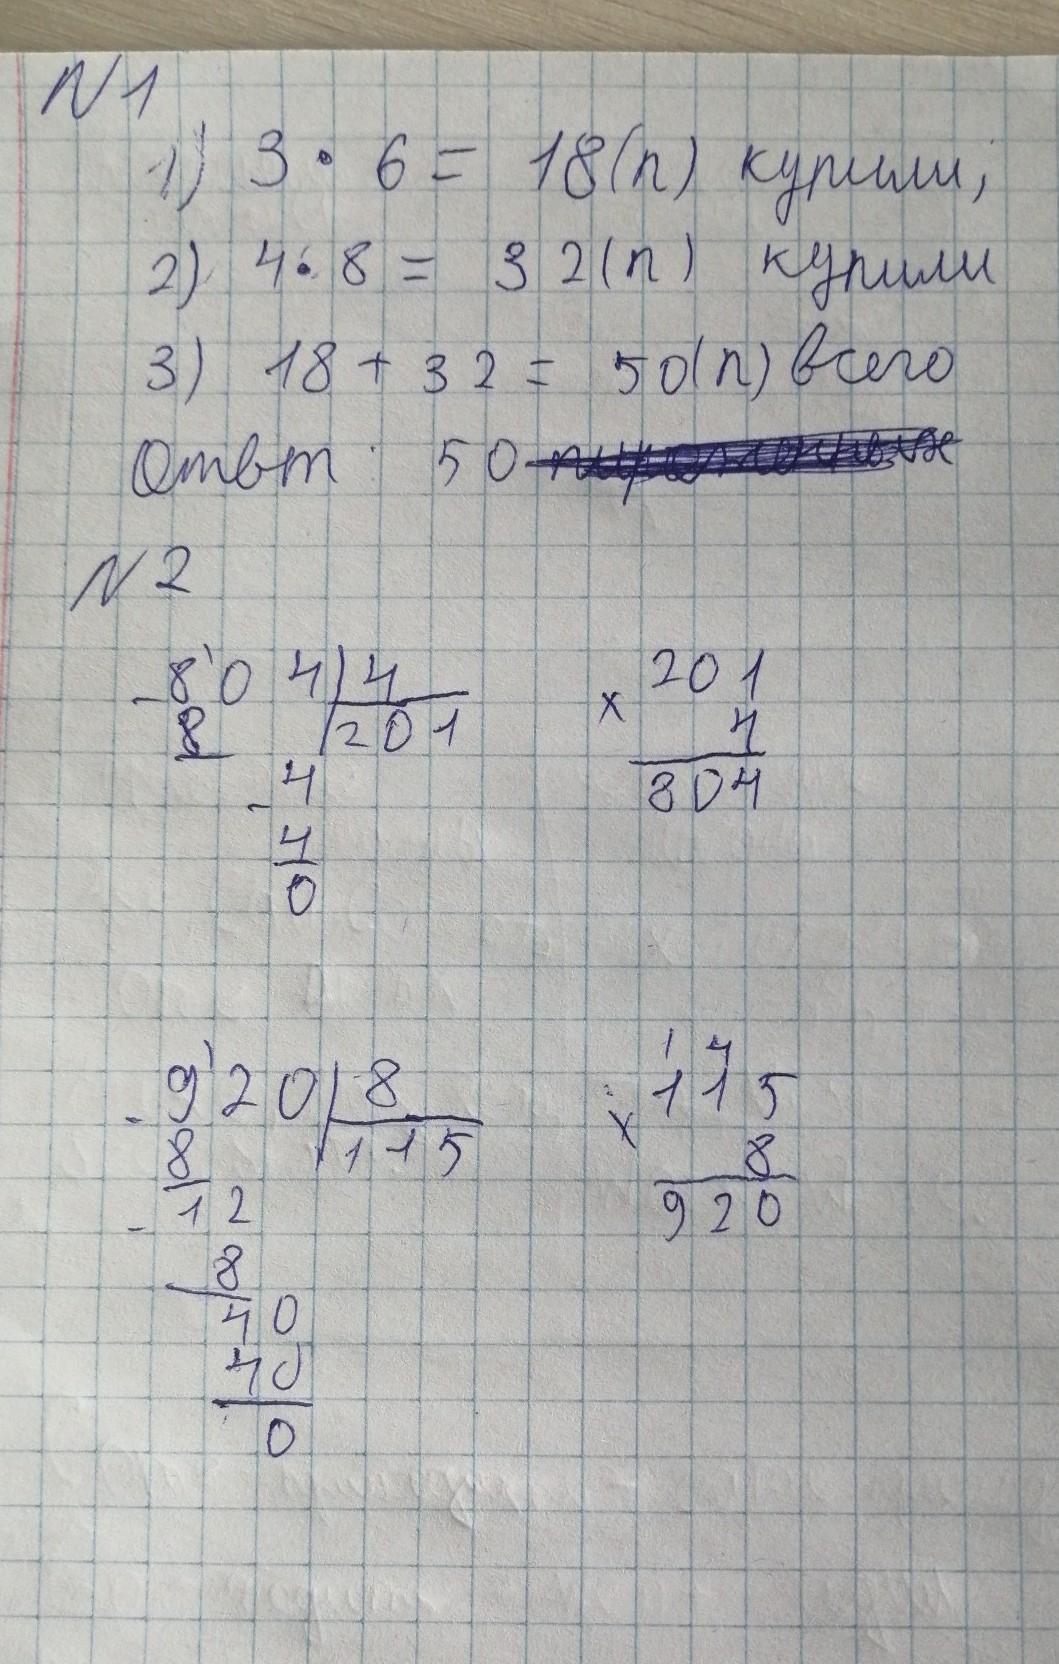 N 1
1) 3 • 6 = 18(п) купили;
2) 4 • 8 = 32(п) купили
3) 18 + 32 = 50(п) всего
Ответ: 50
N 2
804 | 4
8 | 201
4
4
0
201
× 4
804
920 | 8
8 | 115
12
8
40
40
0
1 4
115
× 8
920